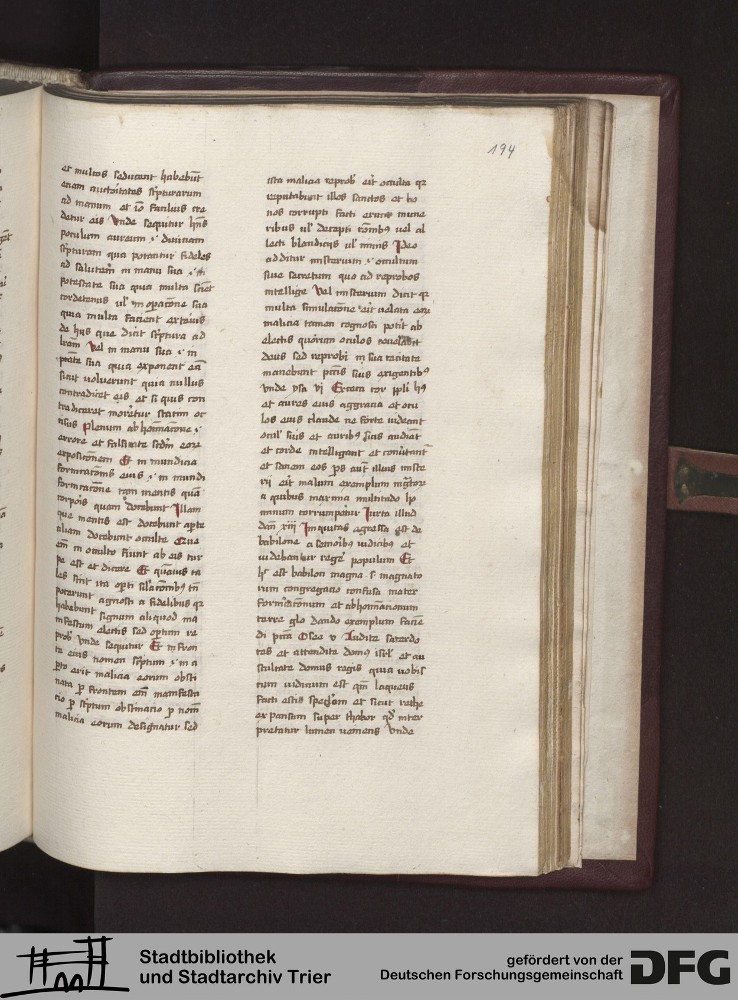 194
et multos seducant habebūt
eciam auctoitates sc̄pturarum
ad manum et iō facilius cre
detur eis Vnde sequitur hn̄s
poculum aureum .i. diuinam
sc̄pturam qua potantur fideles
ad salutem in manu sua .i. in
potestate sua quia multa sciet
cordetenus ul' in opacōne sua
quia multa facient exterius
de hijs que dicit sc̄ptura ad
lr̄am Vel in manu sua .i. in
ptāte sua quia exponent eā
sicut voluerunt quia nullus
contradicet eis et si quis con
tradiceret moretur statim oc
cisus Plenum abhoīacōne .i.
errore et falsitate scdm̄ eorū
expositōnem Et in mundicia
fornicatōnis eius .i. in mundi
fornicacōne tam mentis quā
corpois quam docebunt Illam
que mentis est docebunt apte
aliam docebunt occulte Que
em̄ in occulto fiunt ab eis tur
pe est et dicere Et quāuis ta
les sint ita opti sil'acōnibꝯ tn̄
poterunt agnosci a fidelibus qꝛ
habebunt signum aliquod ma
nifestum electis sed optum re
prob' vnde sequitur Et in fron
te eius nomen sc̄ptum .i. in a
pto erit malicia eorum obsti
nata p frontem em̄ manifesta
tio p sc̄ptum obstinatio p nom̄
malicia eorum designatur sed
ista malicia reprob' erit occulta qꝛ
reputabunt illos sanctos et bo
nos corrupti facti erunt mune
ribus ul' decepti rōnibꝯ uel al
lecti blandicijs ul' minis Ideo
additur misterium .i. occultum
siue secretum quo ad reprobos
intellige Vel misterium dicit qꝛ
multa simulacōne erit uelata eorū
malicia tamen cognosci potit ab
electis quorum oculos reuelauit
deus sed reprobi in sua cecitate
manebunt pctīs suis exigentibꝯ
vnde ysa vi Exceca cor ppli hꝯ
et aures eius aggraua et ocu
los eius claude ne forte uideant
ocul' suis et auribꝯ suis audiāt
et corde intelligant et conūtant̄
et sanem eos ps aut̄ illius miste
rij est malum exemplum mgr̄orū
a quibus maxima multitudo ho
minum corrumpetur Iuxta illud
dan̄ xiii Iniquitas egressa est de
babilone a senioībꝯ iudicibꝯ et
uidebantur regē populum Et
h' est babilon magna .s. magnato
rum congregacio confusa mater
fornicationum et abhominacionum
terre .glo. dando exemplum facie
di pctā Osee v Audite sacerdo
tes et attendite domꝯ isrl' et au
scultate domus regis quia uobis
cum iudicium est qm̄ laqueus
facti estis speclōm et sicut rethe
expansum super thabor qd' inter
pretatur lumen ueniens Vnde
Stadtbibliothek
und Stadtarchiv Trier
gefördert von der
Deutschen Forschungsgemeinschaft
DFG